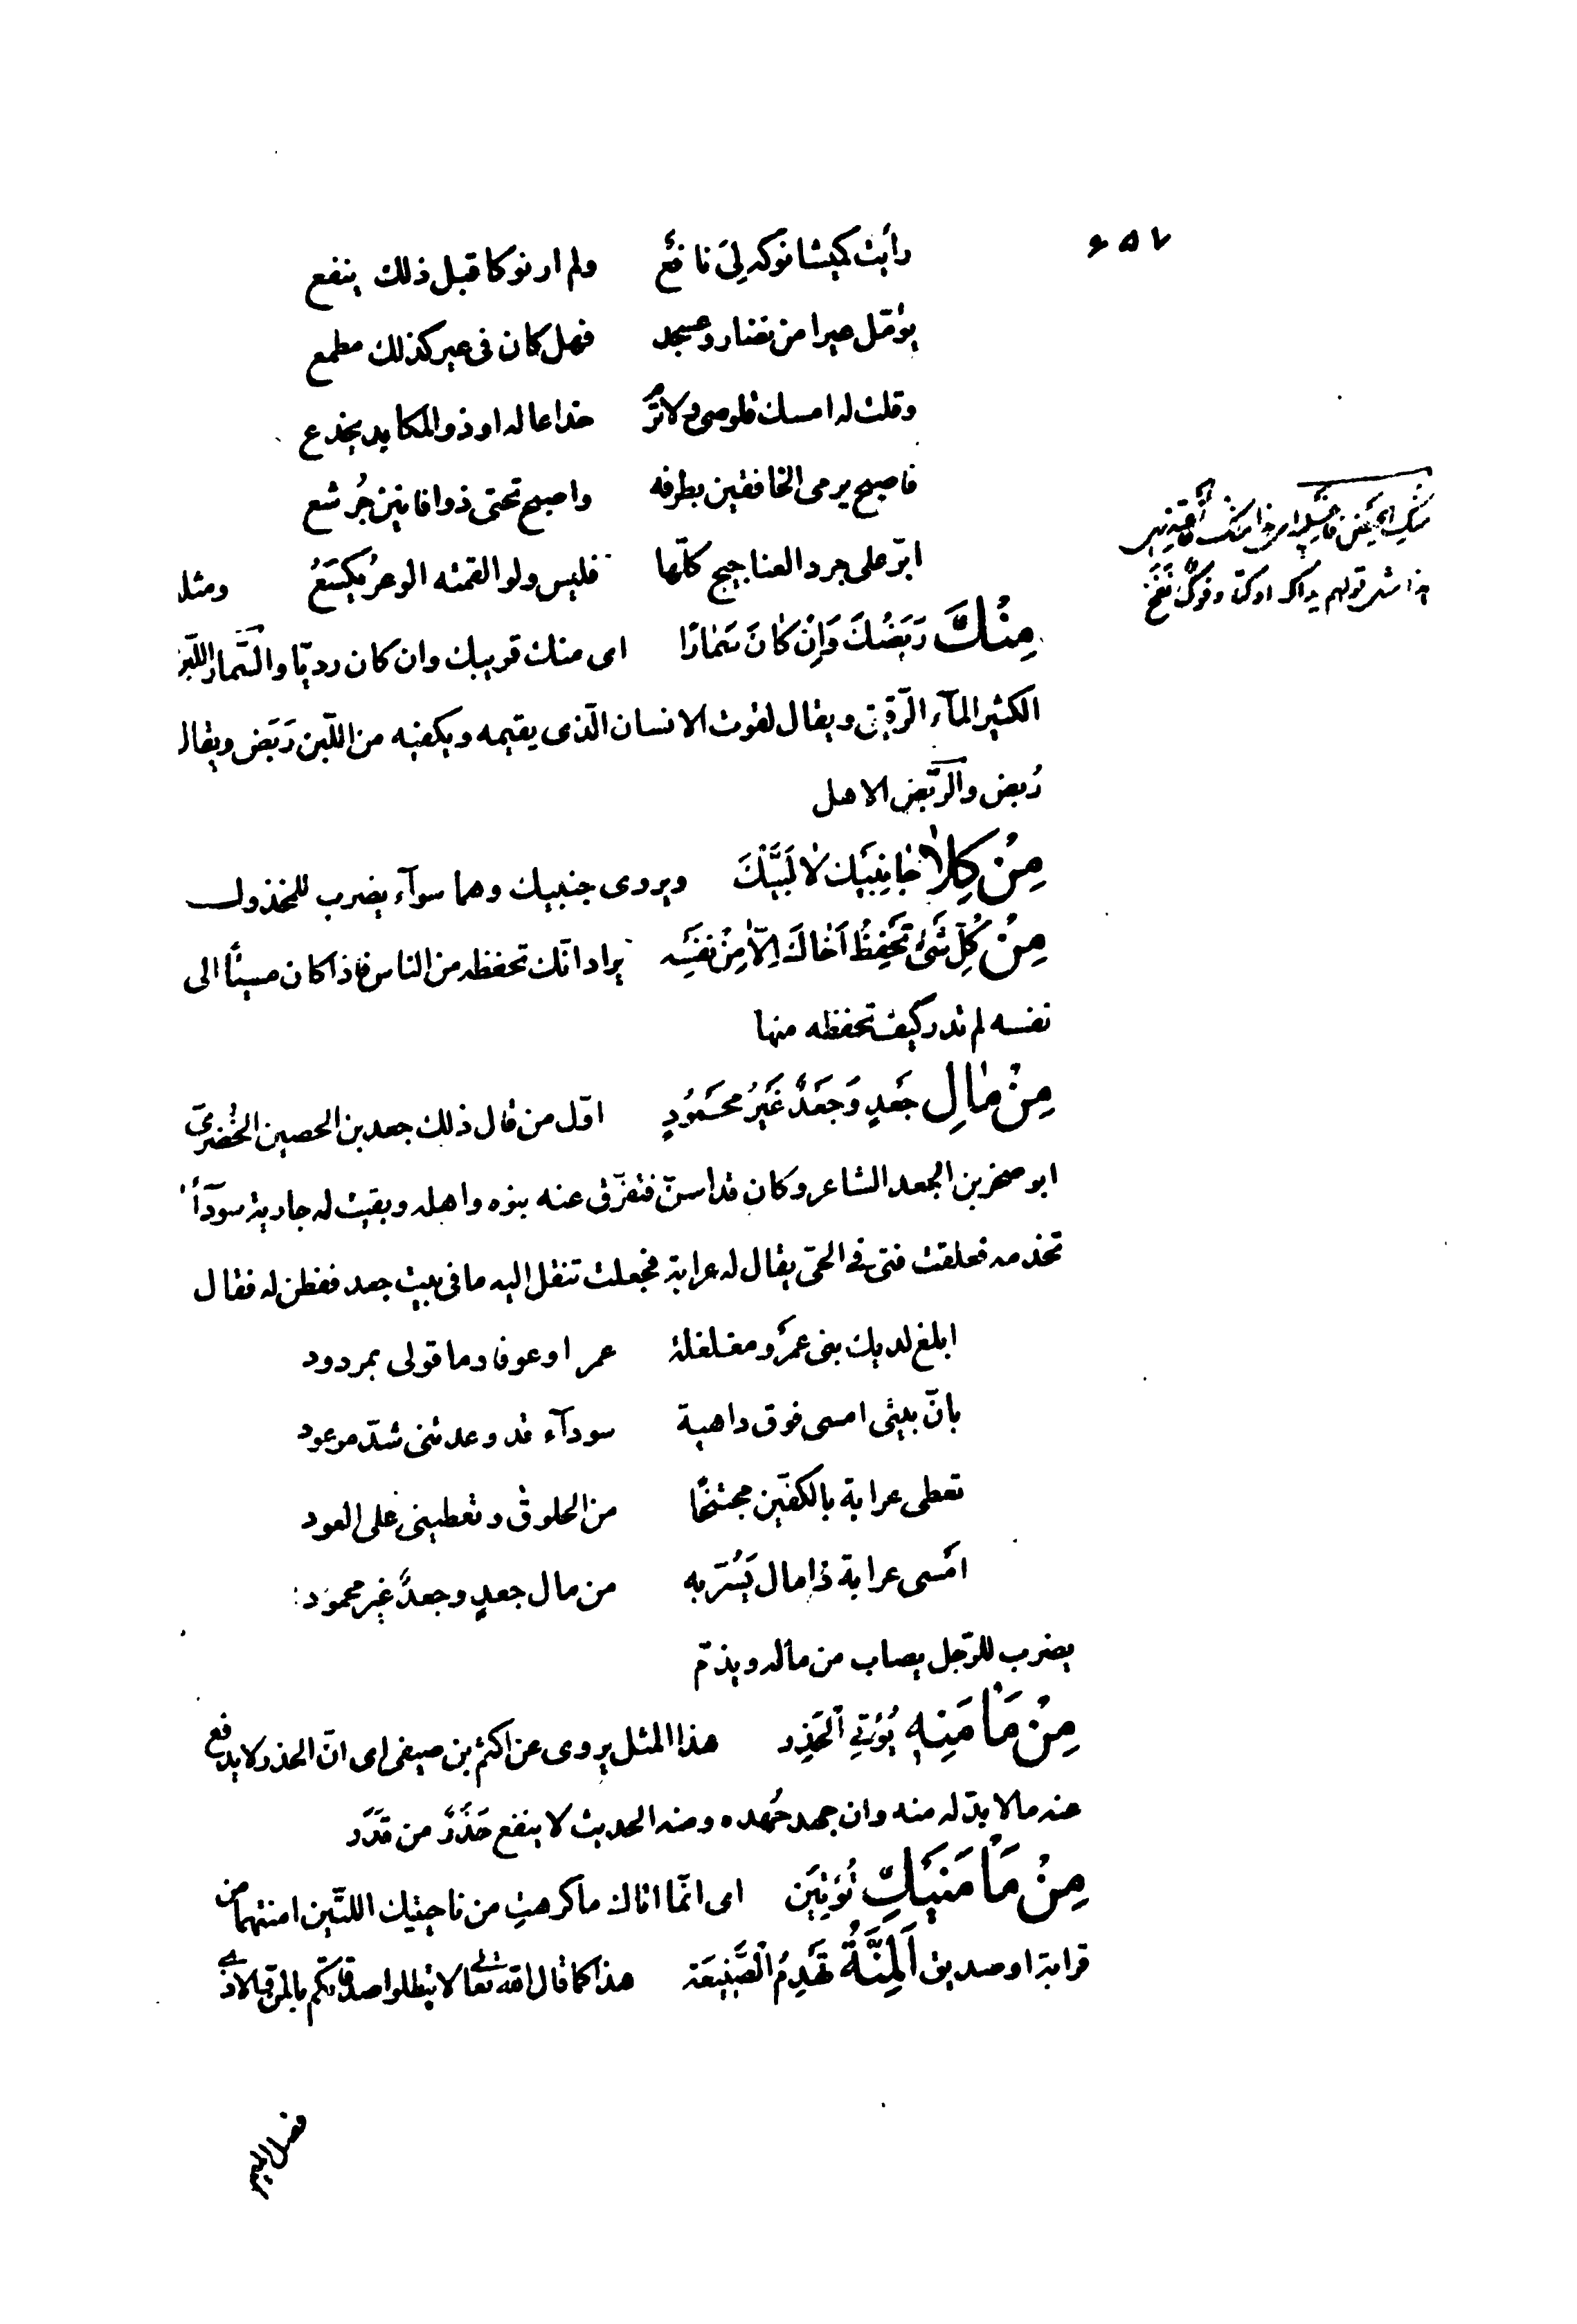 ٦٥٧
رأيت كميشا نوكه لِىَ نافعٌ ولم ار نوكا قبل ذلك ينفع
يؤمّل عيرا من نضار وعسجد فهل كان فى عير كذلك مطمع
وقلت له امسك قلوصى ولا تَرُمْ خداعا له اذ ذو المكايد يخدع
فاصبح يرمى الخافقين بطرفه واصبح تحتى ذو افانين جُرشع
ابرّ على جرد العناجيج كلّها فليس ولو اقحمته الوعرُ يكسَعُ ومثله
مِنْكَ رَبَضُكَ وَاِنْ كٰانَ سَمٰارًا اى منك قريبك وان كان رديّا والسَّمار اللّبن
الكثير المآء الرّقيق ويقال لقوت الانسان الّذى يقيمه ويكفيه من اللّبن رَبَض ويقال
رُبض والرّبَض الاهل
مِنْ كِلاٰ جٰانِبَيْكَ لاٰ لَبَّيْكَ ويروى جنبيك وهما سوآء يضرب للمخذول
مِنْ كُلِّ شَىْءٍ تَحْفَظُ اَخٰاكَ اِلاّٰ مِنْ نَفْسِهِ يراد انّك تحفظه من الناس فاذا كان مسيئًا الى
نفسه لم تدر كيف تحفظه منها
مِنْ مٰالِ جَعْدٍ وَجَعْدٌ غَيْرُ مَحْمُودٍ اوّل من قال ذلك جعد بن الحصين الخُضرىّ
ابو صخر بن الجعد الشاعر وكان قد اسنّ فتفرّق عنه بنوه واهله وبقيت له جارية سودآء
تخدمه فعلقت فتى فى الحىّ يقال له عرابة فجعلت تنقل اليه ما فى بيت جعد ففطن له فقال
ابلغ لديك بنى عمرٍو مغلغلة عمرا وعوفا وما قولى بمردود
بانّ بيتى امسى فوق داهية سودآء قد وعدتنى شدّ موعود
تعطى عرابة بالكفّين مجتنحًا من الخلوق وتعطينى على العود
امْسى عرابة ذا مال يُسَرّ به من مال جعدٍ وجعدٌ غير محمود
يضرب للرّجل يصاب من ماله ويذمّ
مِنْ مَاْمَنِهِ يُؤْتَى اَلْحَذِر هذا المثل يروى عن اكثم بن صيفى اى انّ الحذر لا يدفع
عنه ما لا بدّ له منه وان جهد جُهده ومنه الحديث لا ينفع حَذَرٌ من قَدَر
مِنْ مَاْمَنَيْكِ تُؤْتَيْنَ اى انّما اتاك ما كرهتِ من ناحيتيك اللتين امنتهما من
قرابة او صديق اَلْمِنَّةُ تَهْدِمُ الصَّنِيعَة هذا كما قال الله تعالى لا تبطلوا صدقاتكم بالمنّ والاذى
فصل الميم